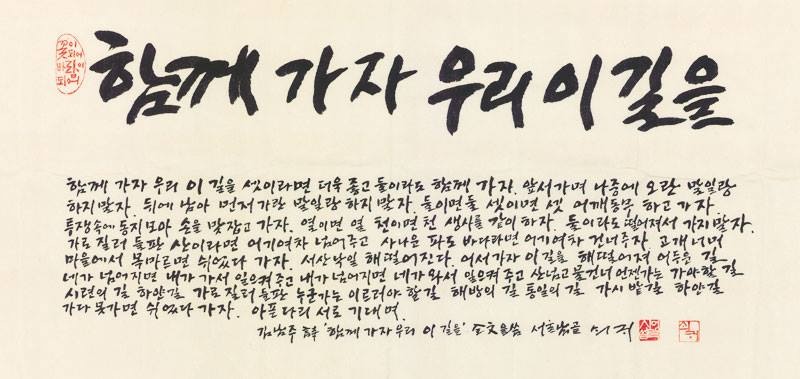 꽃이
되어
바람이
되어
함께 가자 우리 이 길을
함께 가자 우리 이 길을 셋이라면 더욱 좋고 둘이라도 함께 가자. 앞서가며 나중에 오란 말일랑
하지말자. 뒤에 남아 먼저 가란 말일랑 하지말자. 둘이면 둘 셋이면 셋 어깨동무 하고 가자.
투쟁속에 동지모아 손을 맞잡고 가자. 열이면 열 천이면 천 생사를 같이 하자. 둘이라도 떨어져서 가지말자.
가로질러 들판 산이라면 어기여차 넘어주고 사나운 파도 바다라면 어기여차 건너주자 고개너머
마을에서 목마르면 쉬었다 가자. 서산낙일 해 떨어진다. 어서가자 이 길을 해 떨어져 어두운 길
네가 넘어지면 내가 가서 일으켜주고 내가 넘어지면 네가 와서 일으켜주고 산넘고 물건너 언젠가는 가야할 길
시련의 길 하얀길 가로질러 들판 누군가는 이르러야 할길 해방의 길 통일의 길 가시밭길 하얀길
가다 못가면 쉬었다 가자. 아픈다리 서로 기대며.
김남주 詩 '함께 가자 우리 이 길을' 全文을 씀